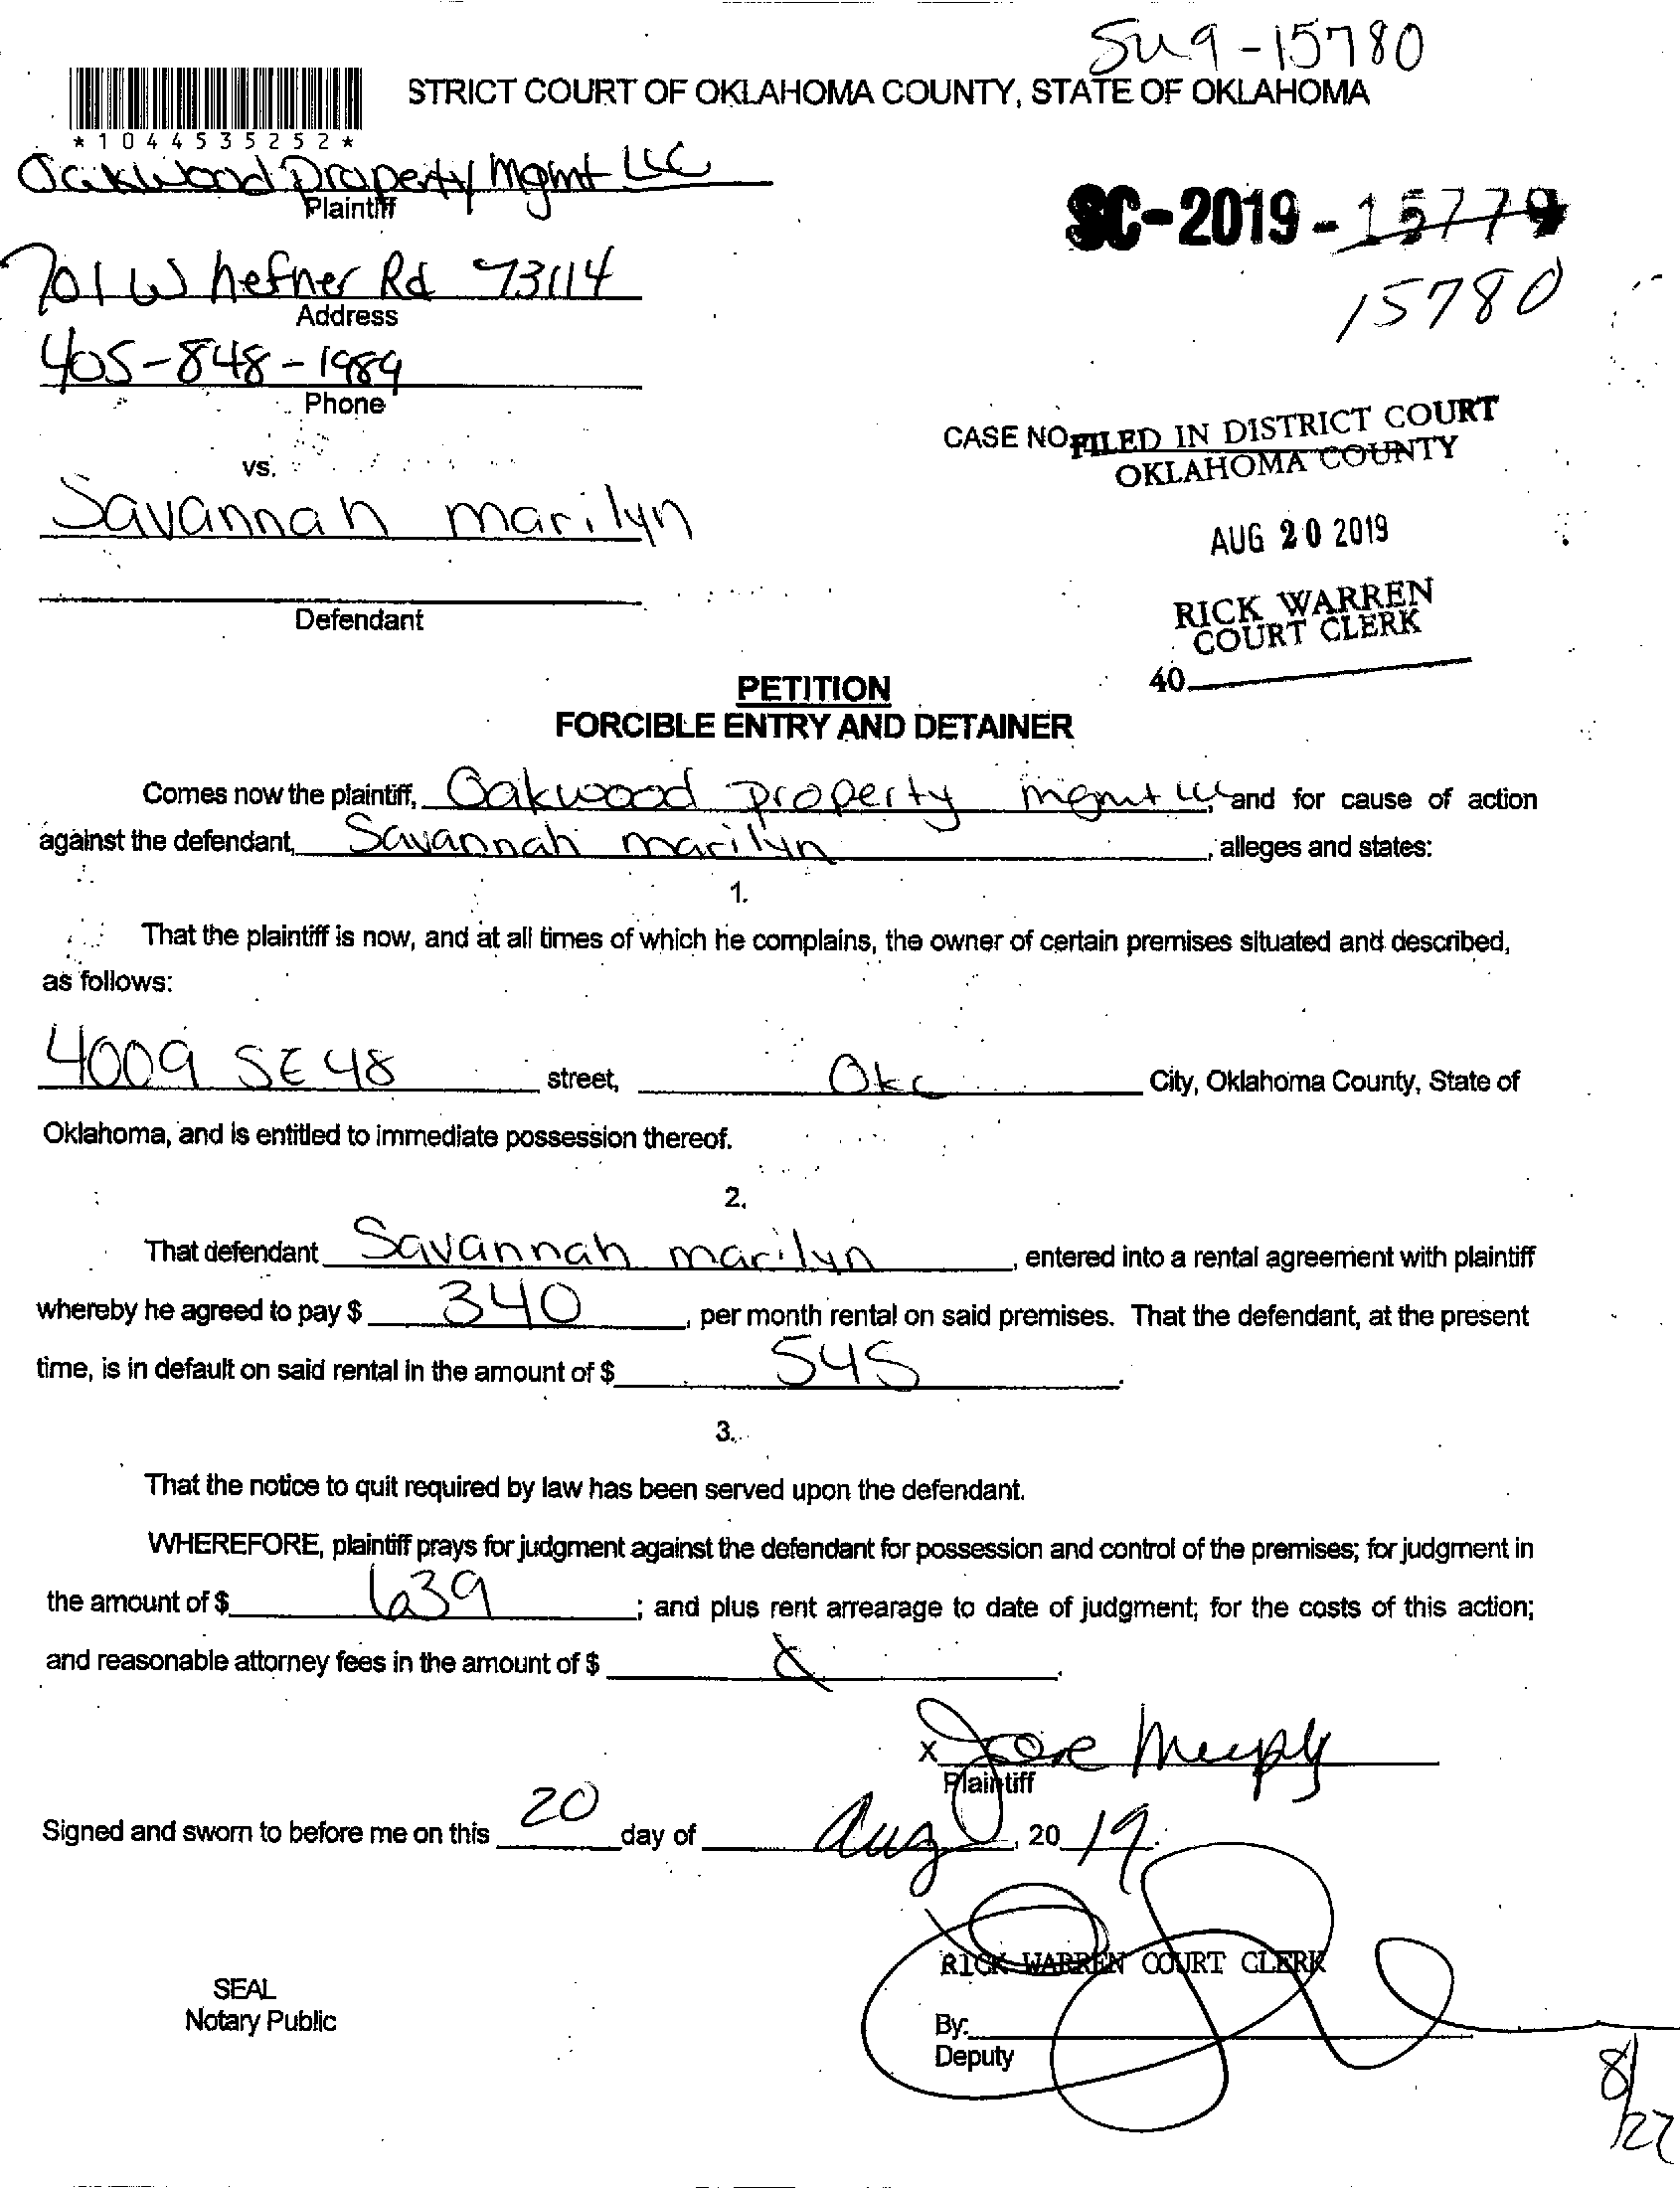 15780
STRICT COURT OF OKLAHOMA COUNTY, STATE OF OKLAHOMA
*1044535252*
Oakwood Property Mgmt LLC
Plaintiff
SC-2019-15779
701 W hefner Rd 73114
Address
15780
405-848-1989
Phone
CASE NO. FILED IN DISTRICT COURT
OKLAHOMA COUNTY
vs.
Savannah marilyn
AUG 20 2019
Defendant
RICK WARREN
COURT CLERK
40
PETITION
FORCIBLE ENTRY AND DETAINER
Comes now the plaintiff, Oakwood property mgmt LLC, and for cause of action
against the defendant, Savannah marilyn, alleges and states:
1.
That the plaintiff is now, and at all times of which he complains, the owner of certain premises situated and described,
as follows:
4009 SE 48 street, Okc City, Oklahoma County, State of
Oklahoma, and is entitled to immediate possession thereof.
2.
That defendant Savannah marilyn, entered into a rental agreement with plaintiff
whereby he agreed to pay $ 340, per month rental on said premises. That the defendant, at the present
time, is in default on said rental in the amount of $ 545.
3.
That the notice to quit required by law has been served upon the defendant.
WHEREFORE, plaintiff prays for judgment against the defendant for possession and control of the premises; for judgment in
the amount of $ 639; and plus rent arrearage to date of judgment; for the costs of this action;
and reasonable attorney fees in the amount of $
X
Plaintiff
Signed and sworn to before me on this 20 day of Aug, 20 19.
RICK WARREN COURT CLERK
SEAL
Notary Public
By:
Deputy
8/27